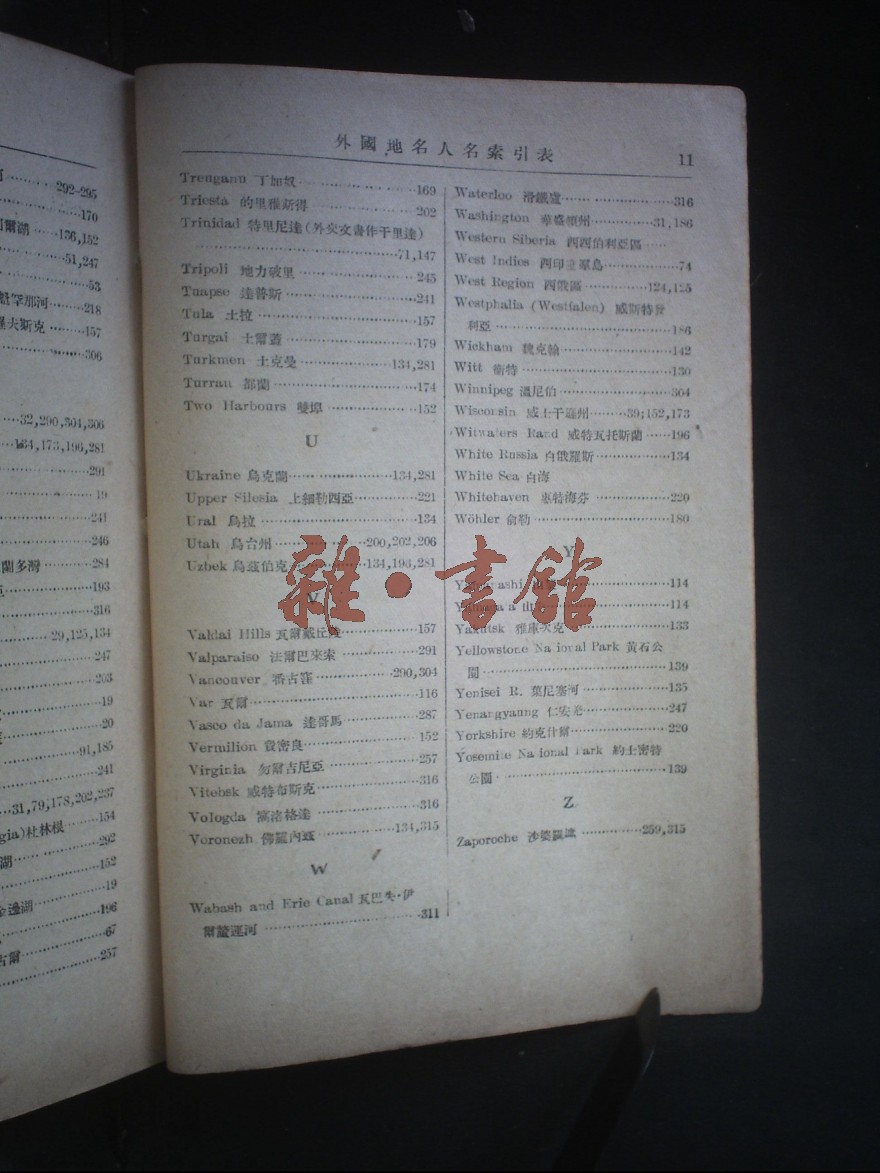 292-295
170
爾湖 136,152
51,247
53
那河 218
夫斯克 157
306
32,290,304,306
134,173,196,281
291
19
241
246
蘭多灣 284
193
316
29,125,134
247
203
19
20
91,185
241
31,79,178,202,237
gia)杜林根 154
湖 292
152
湖 19
196
67
古爾 257
外國地名人名索引表 11
Trenganu 丁加奴 169
Triesta 的里雅斯得 202
Trinidad 特里尼達(外交文書作千里達)
71,147
Tripoli 地力破里 245
Tuapse 達普斯 241
Tula 土拉 157
Turgai 土爾蓋 179
Turkmen 土克曼 134,281
Turrau 都蘭 174
Two Harbours 雙埠 152
U
Ukraine 烏克蘭 134,281
Upper Silesia 上細勒西亞 221
Ural 烏拉 134
Utah 烏台州 200,202,206
Uzbek 烏茲伯克 134,193,281
V
Valdai Hills 瓦爾戴丘陵 157
Valparaiso 法爾巴來索 291
Vancouver 番古窪 290,304
Var 瓦爾 116
Vasco da Jama 達哥馬 287
Vermilion 費密良 152
Virginia 勿爾吉尼亞 257
Vitebsk 威特布斯克 316
Vologda 窩洛格達 316
Voronezh 佛羅內茲 134,315
W
Wabash and Erie Canal 瓦巴失·伊
爾釐運河 311
Waterloo 滑鐵盧 316
Washington 華盛頓州 31,186
Western Siberia 西西伯利亞區
West Indies 西印度羣島 74
West Region 西俄區 124,125
Westphalia (Westfalen) 威斯特發
利亞 186
Wickham 魏克翰 142
Witt 衛特 130
Winnipeg 溫尼伯 304
Wisconsin 威士干遜州 39;152,173
Witwaters Rand 威特瓦托斯蘭 196
White Russia 白俄羅斯 134
White Sea 白海
Whitehaven 惠特海芬 220
Wöhler 俞勒 180
Y
114
114
Yakutsk 雅庫次克 133
Yellowstone National Park 黃石公
園 139
Yenisei R. 葉尼塞河 135
Yenangyaung 仁安羌 247
Yorkshire 約克什爾 220
Yosemite National Park 約士密特
公園 139
Z
Zaporoche 沙婆羅 259,315
雜·書館